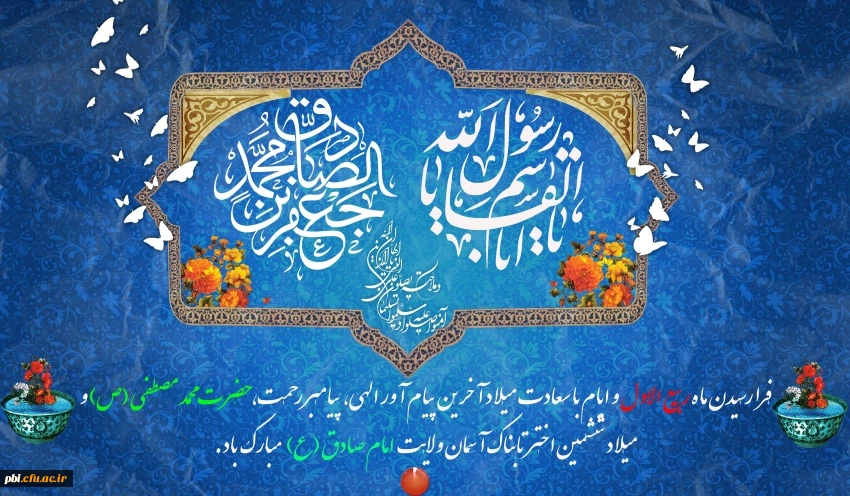 یا رسول الله
یا اباالقاسم
جعفر بن محمد الصادق
فرا رسیدن ماه ربیع الاول و ایام با سعادت میلاد آخرین پیام آور الهی، پیامبر رحمت، حضرت محمد مصطفی (ص) و
میلاد ششمین اختر تابناک آسمان ولایت امام صادق (ع) مبارک باد.
pbi.cfu.ac.ir